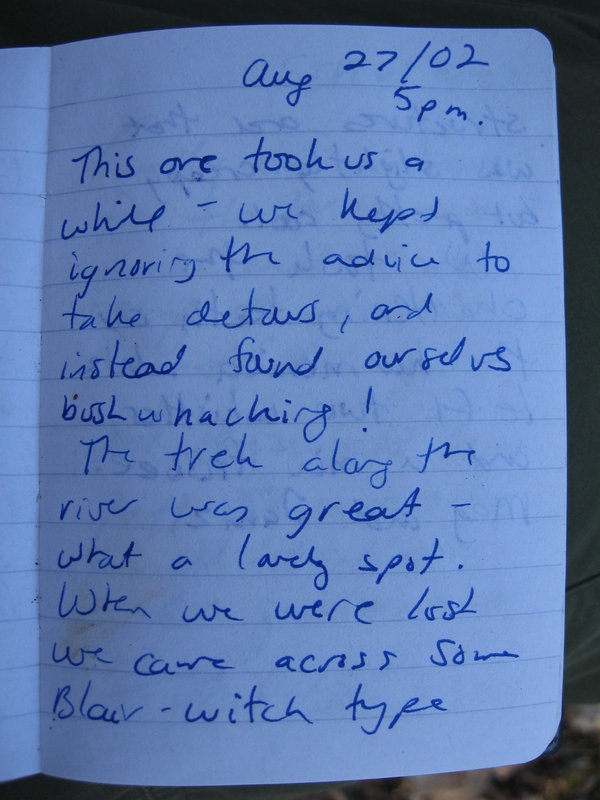 Aug 27/02
5pm.
This one took us a
while - we kept
ignoring the advice to
take detours, and
instead found ourselves
bushwhacking!
The trek along the
river was great -
what a lovely spot.
When we were lost
we came across some
Blair-witch type